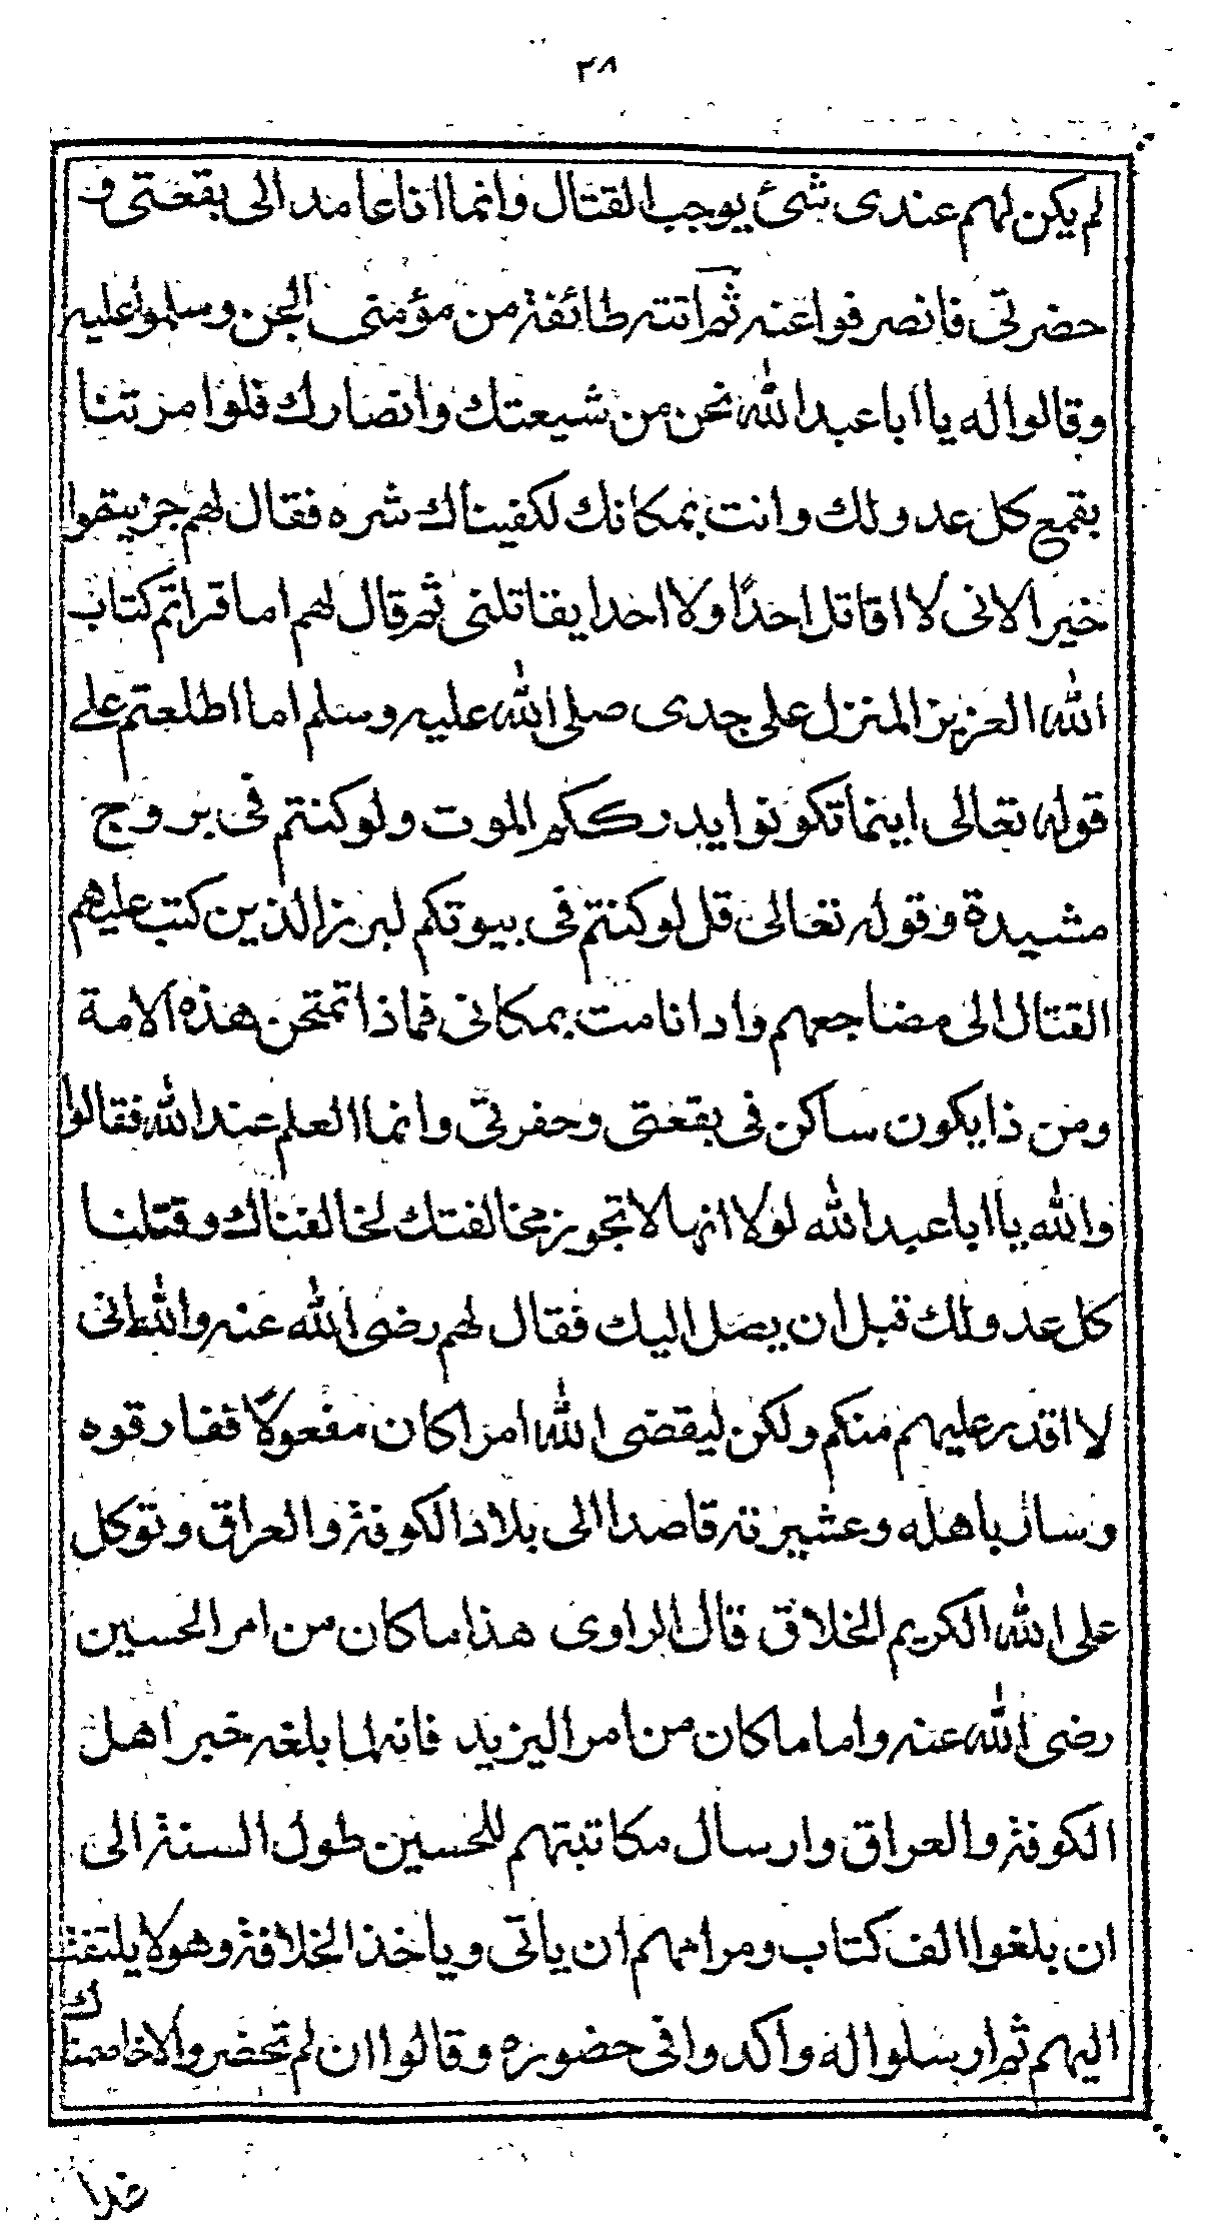 ٣٨
لم يكن لهم عندى شئ يوجب القتال وانما انا عامد الى بقعتى و
حضرتى فانصرفوا عنه ثم اتته طائفة من مؤمنى الجن وسلموا عليه
وقالوا له يا ابا عبد الله نحن من شيعتك وانصارك فلوا مرتنا
بقمع كل عدو لك وانت بمكانك لكفيناك شره فقال لهم جزيتموا
خيرا لانى لا اقاتل احدًا ولا احدا يقاتلنى ثم قال لهم اما قراتم كتاب
الله العزيز المنزل على جدى صلى الله عليه وسلم اما اطلعتم على
قوله تعالى اينما تكونوا يدرككم الموت ولو كنتم فى بروج
مشيدة وقوله تعالى قل لو كنتم فى بيوتكم لبرز الذين كتب عليهم
القتال الى مضاجعهم وادا نامت بمكانى فماذا تمتحن هذه الامة
ومن ذا يكون ساكن فى بقعتى وحفرتى وانما العلم عند الله فقالوا
والله يا ابا عبد الله لولا انها لا تجوز مخالفتك لخالفناك وقتلنا
كل عدو لك قبل ان يصل اليك فقال لهم رضى الله عنه والله انى
لا اقدر عليهم منكم ولكن ليقضى الله امرا كان مفعولًا ففارقوه
وسار باهله وعشيرته قاصدا الى بلاد الكوفة والعراق وتوكل
على الله الكريم الخلاق قال الراوى هذا ما كان من امر الحسين
رضى الله عنه واما ما كان من امر اليزيد فانه لما بلغه خبر اهل
الكوفة والعراق وارسال مكاتبتهم للحسين طول السنة الى
ان بلغوا الف كتاب ومرامهم ان ياتى وياخذ الخلافة وهو لا يلتفت
اليهم ثم ارسلوا له واكدوا فى حضوره وقالوا ان لم تحضر والا خاصمناك
غدا